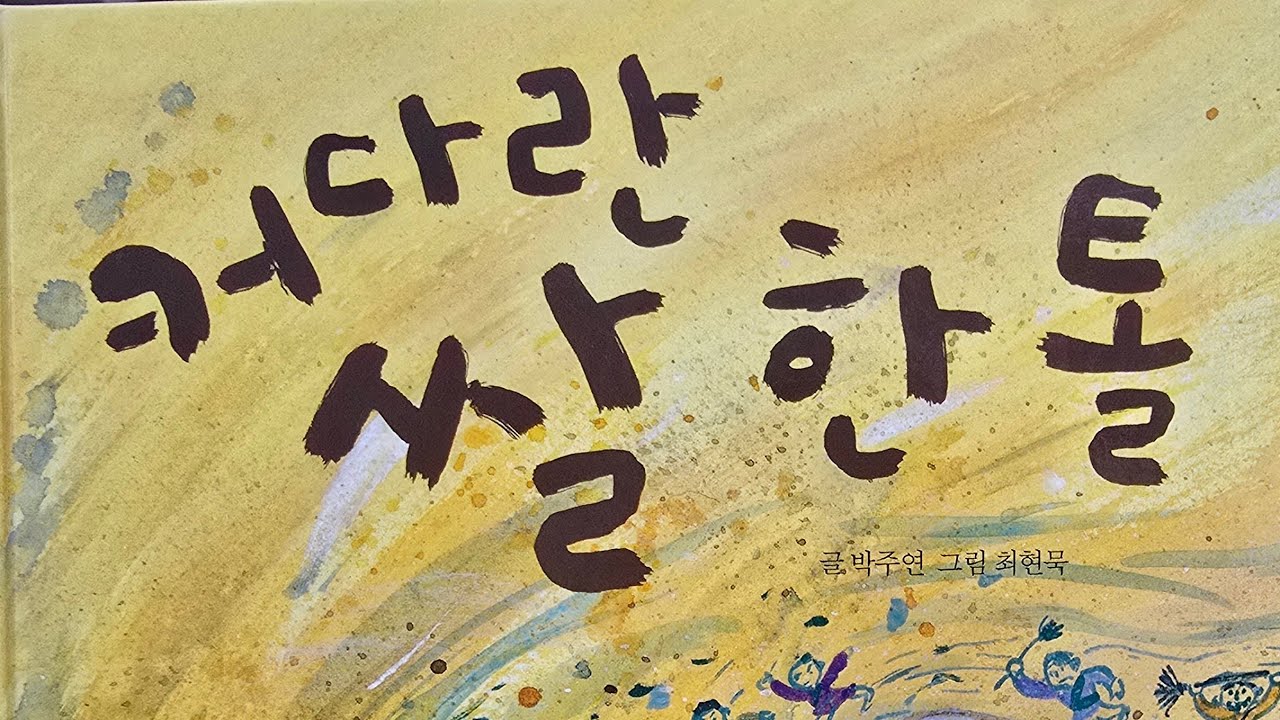 커다란
쌀 한 톨
글 박주연 그림 최현묵